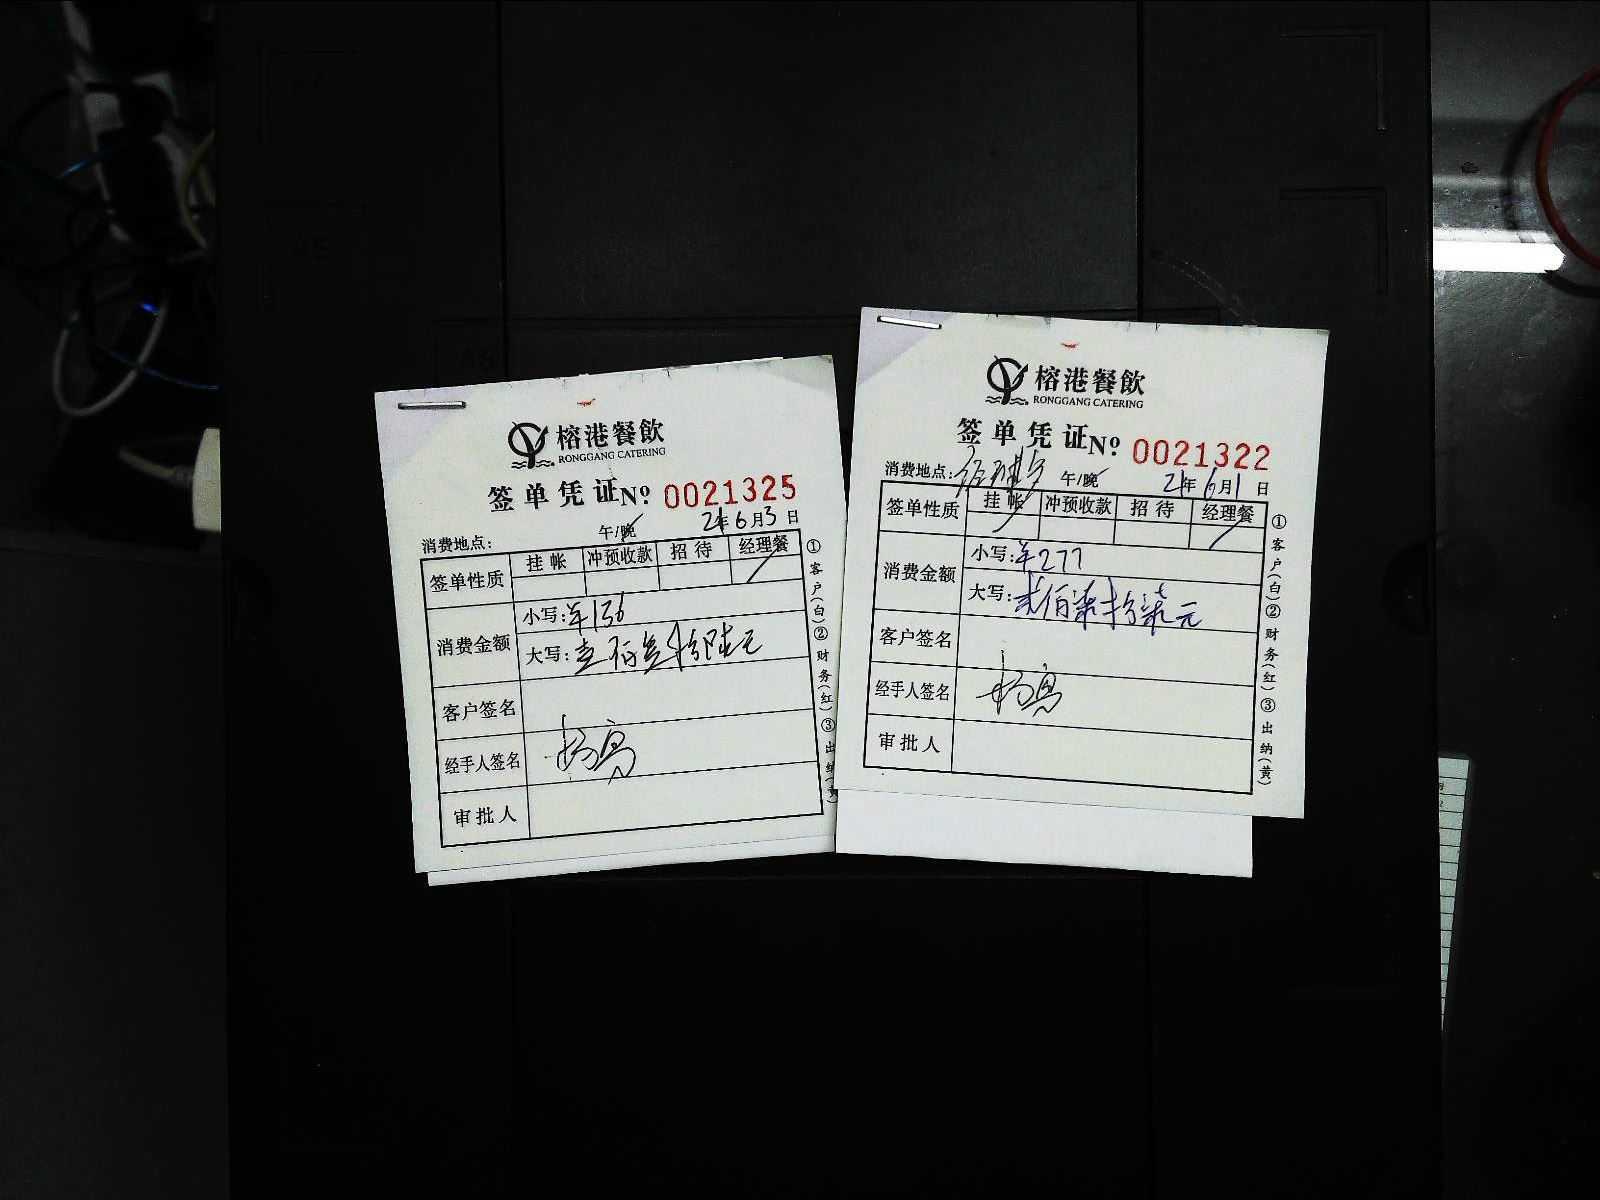 榕港餐飲
RONGGANG CATERING
签单凭证 No: 0021325
午/晚 21年6月3日
消费地点:
签单性质 挂帐 冲预收款 招待 经理餐
消费金额
小写:¥156
大写:壹佰伍拾陆元
客户签名
经手人签名
审批人
①客户(白)②财务(红)③出纳(黄)
榕港餐飲
RONGGANG CATERING
签单凭证 No: 0021322
消费地点: 午/晚 21年6月1日
签单性质 挂帐 冲预收款 招待 经理餐
消费金额
小写:¥277
大写:贰佰柒拾柒元
客户签名
经手人签名
审批人
①客户(白)②财务(红)③出纳(黄)